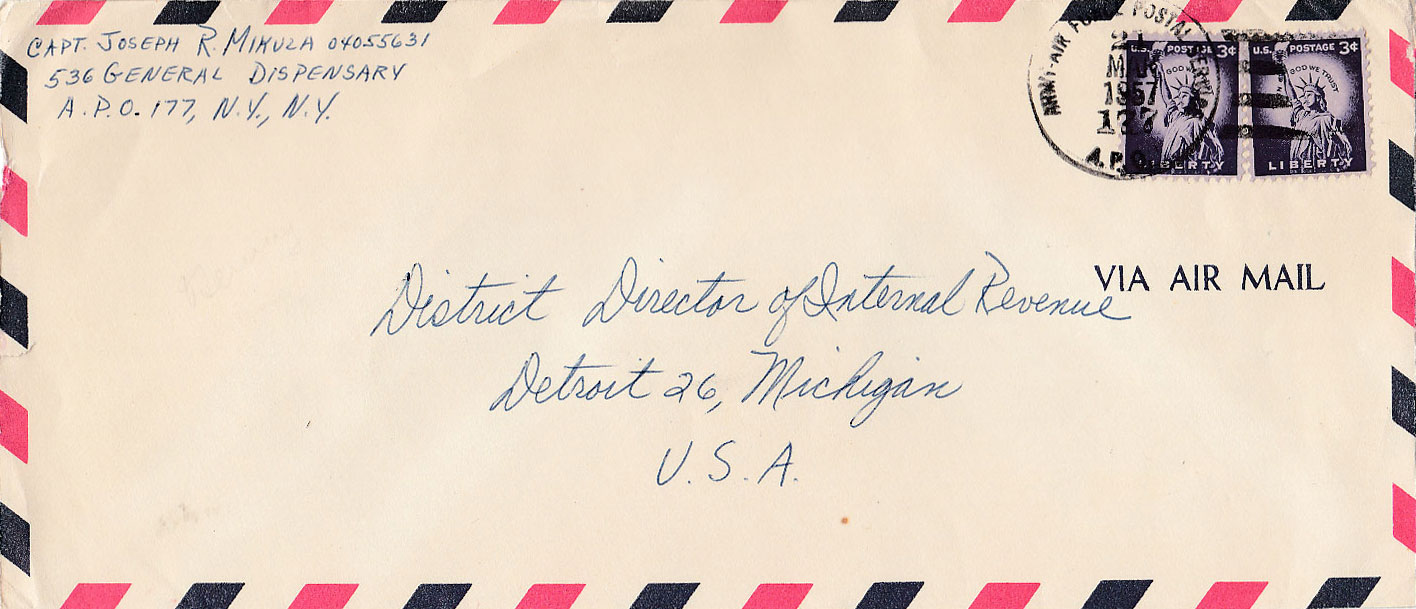 CAPT. JOSEPH R. MIKULA 04055631
536 GENERAL DISPENSARY
A.P.O. 177, N.Y., N.Y.
ARMY-AIR FORCE POSTAL SERVICE
21
MAR
1957
177
A.P.O.
U.S. POSTAGE 3¢
LIBERTY
U.S. POSTAGE 3¢
IN GOD WE TRUST
LIBERTY
VIA AIR MAIL
District Director of Internal Revenue
Detroit 26, Michigan
U.S.A.